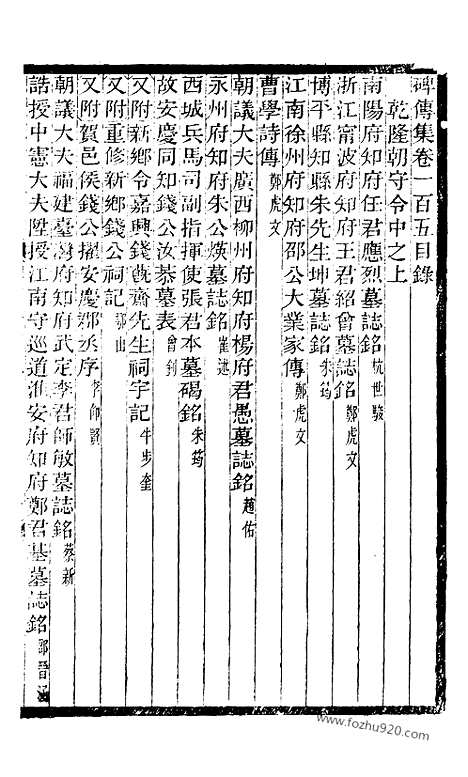 碑傳集卷一百五目錄
乾隆朝守令中之上
南陽府知府任君應烈墓誌銘 杭世駿
浙江甯波府知府王君紹曾墓誌銘 鄭虎文
博平縣知縣朱先生坤墓誌銘 朱筠
江南徐州府知府邵公大業家傳 鄭虎文
曹學詩傳 鄭虎文
朝議大夫廣西柳州府知府楊府君愚墓誌銘 趙佑
永州府知府朱公煐墓誌銘 崔述
西城兵馬司副指揮使張君本墓碣銘 朱筠
故安慶同知錢公汝恭墓表 曾釗
又附新鄉令嘉興錢旣齋先生祠宇記 牛步奎
又附重修新鄉錢公祠記
又附賀邑侯錢公擢安慶郡丞序 李師賢
朝議大夫福建臺灣府知府武定李君師敏墓誌銘 蔡新
誥授中憲大夫陞授江南守巡道淮安府知府鄭君基墓誌銘 邵晉涵
www.fozhu920.com